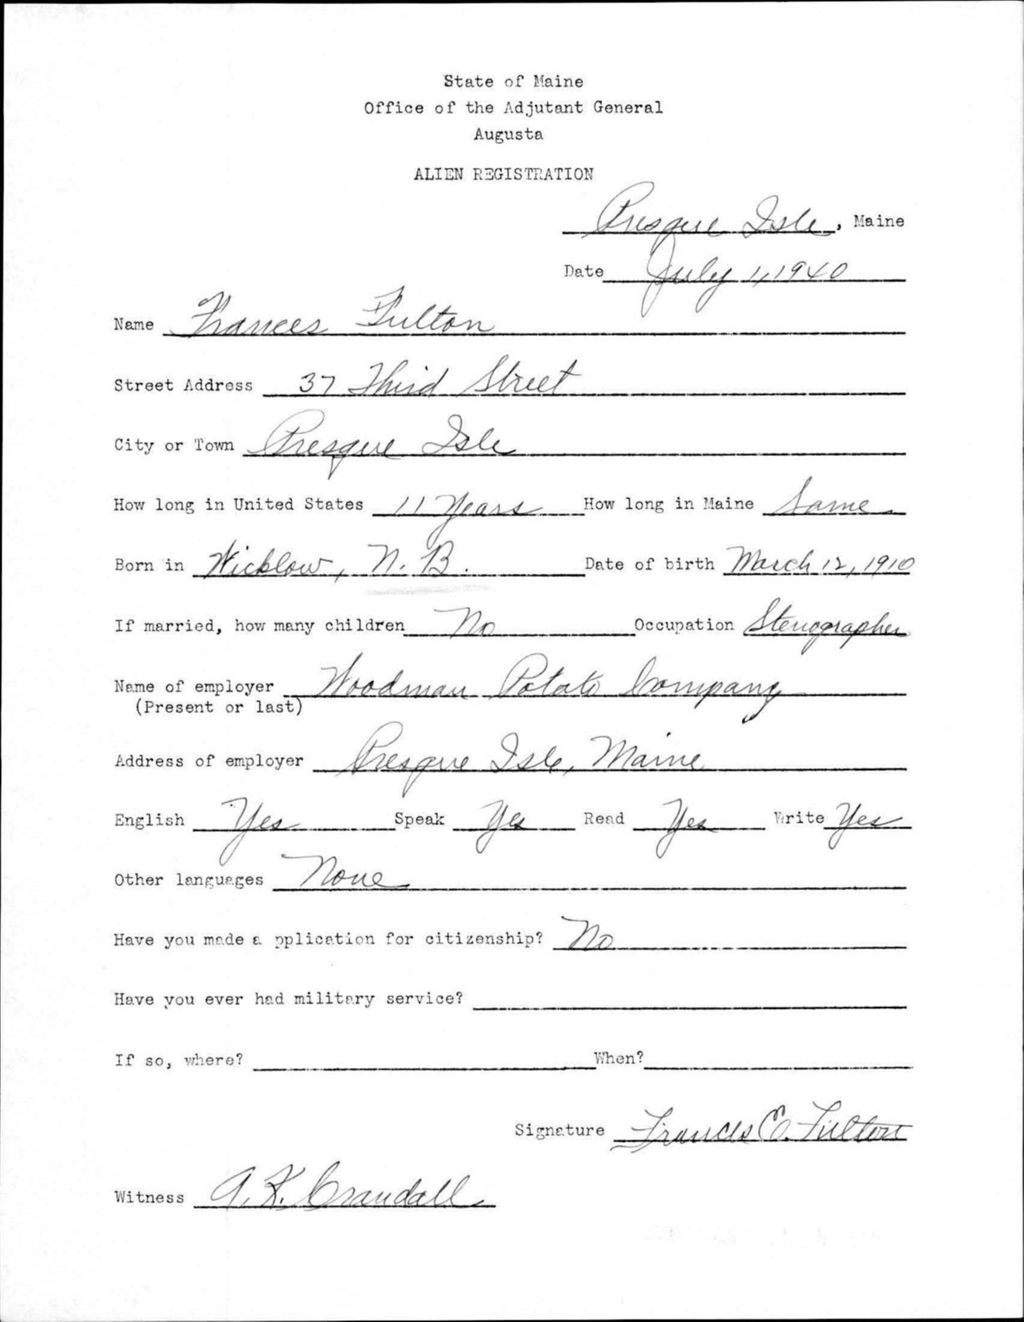 State of Maine
Office of the Adjutant General
Augusta
ALIEN REGISTRATION
Presque Isle, Maine
Date July 1, 1940
Name Frances Fulton
Street Address 37 Third Street
City or Town Presque Isle
How long in United States 11 Years How long in Maine Same
Born in Wicklow, N.B. Date of birth March 12, 1910
If married, how many children No Occupation Stenographer
Name of employer Woodman Potato Company
(Present or last)
Address of employer Presque Isle, Maine
English Yes Speak Yes Read Yes Write Yes
Other languages None
Have you made a pplication for citizenship? No
Have you ever had military service?
If so, where? When?
Signature Frances E. Fulton
Witness A. K. Crandall